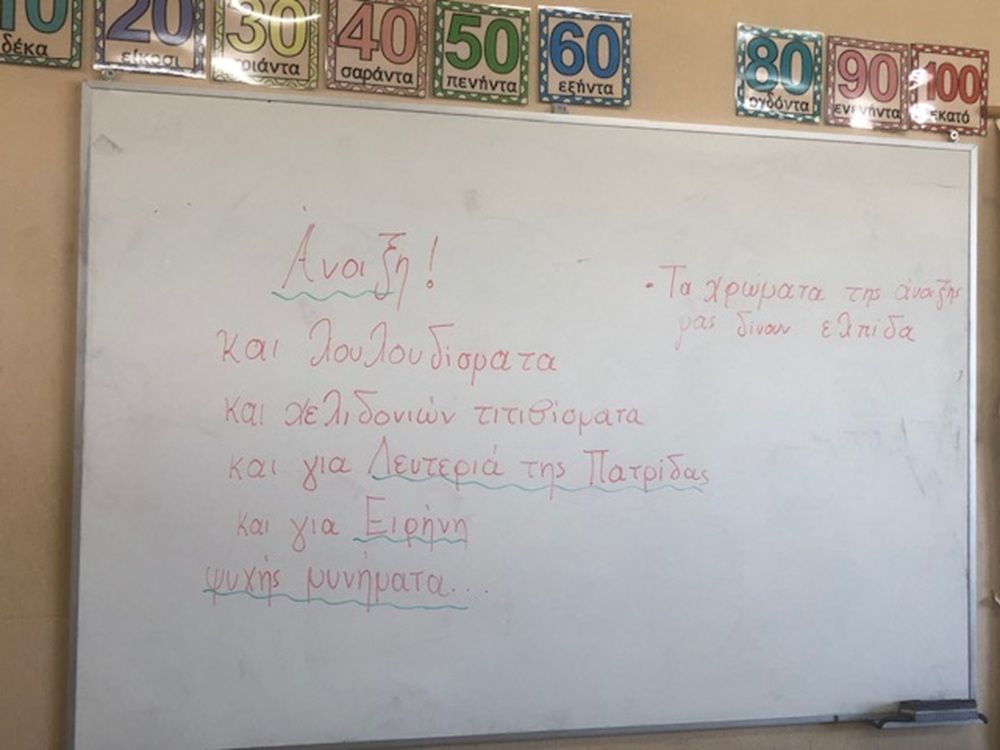 10 20 30 40 50 60 80 90 100
δέκα είκοσι τριάντα σαράντα πενήντα εξήντα ογδόντα ενενήντα εκατό
Άνοιξη!
και λουλουδίσματα
και χελιδονιών τιτιβίσματα
και για Λευτεριά της Πατρίδας
και για Ειρήνη
ψυχής μυνήματα...
• Τα χρώματα της άνοιξης
μας δίνουν ελπίδα